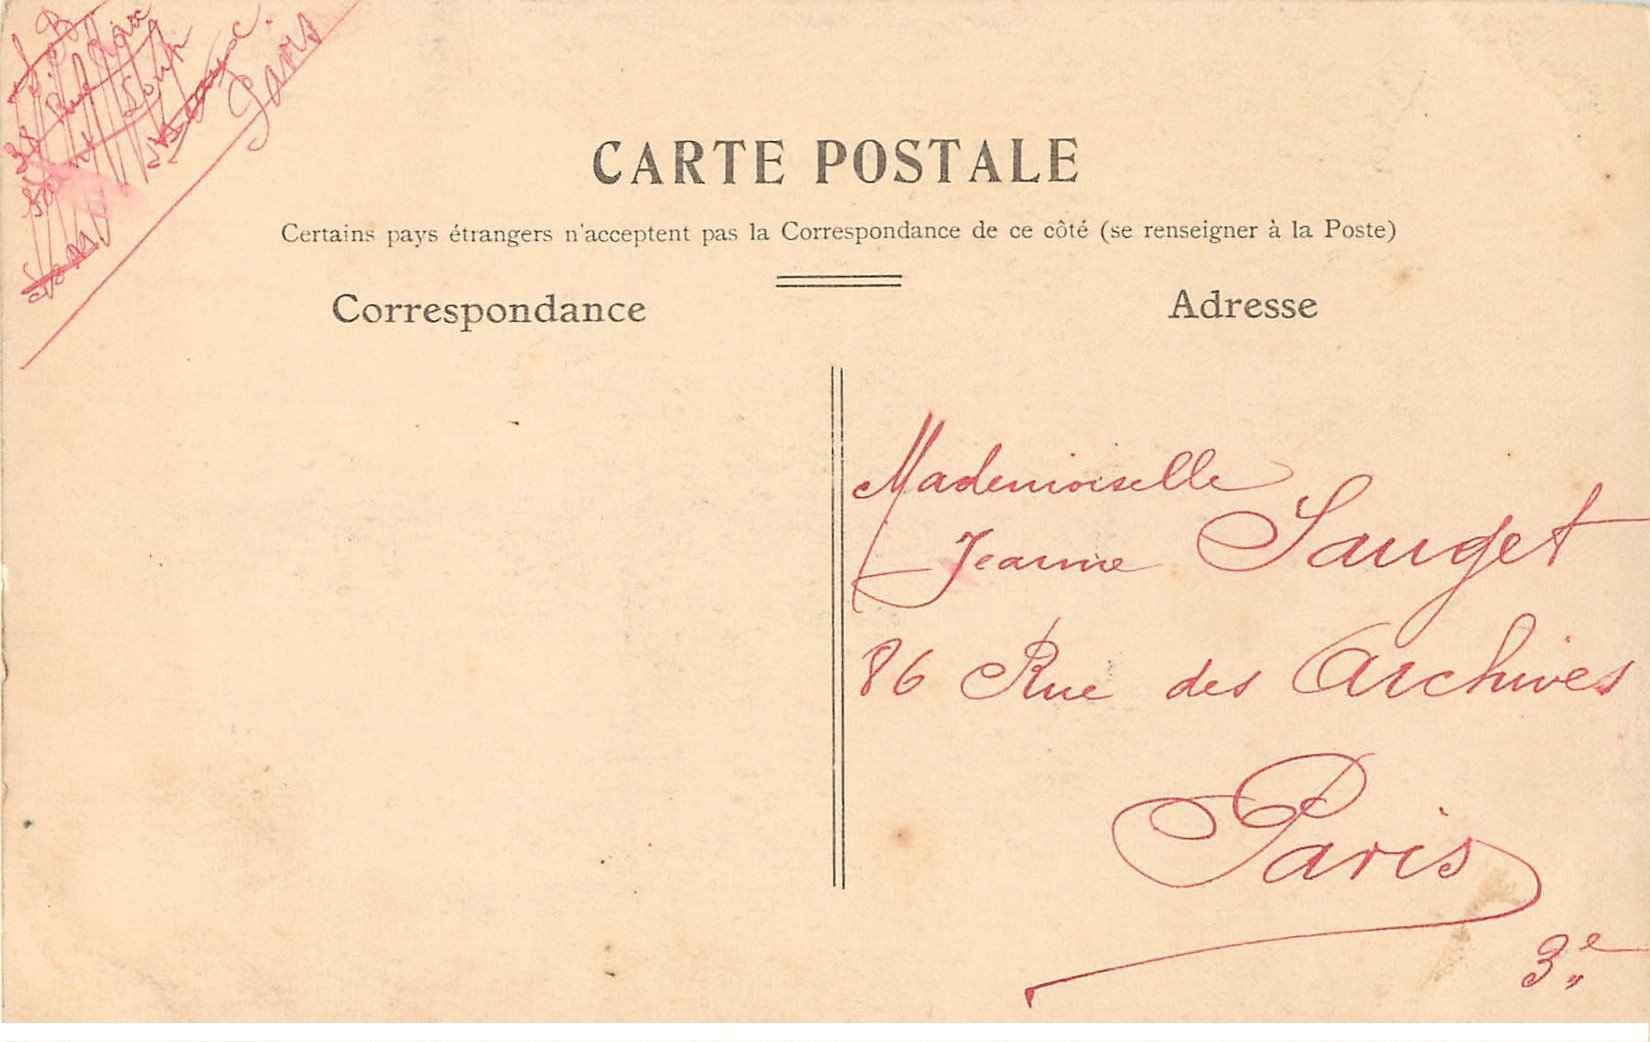 Paris
CARTE POSTALE
Certains pays étrangers n'acceptent pas la Correspondance de ce côté (se renseigner à la Poste)
Correspondance
Adresse
Mademoiselle
Jeanne Sauget
86 Rue des Archives
Paris
3e